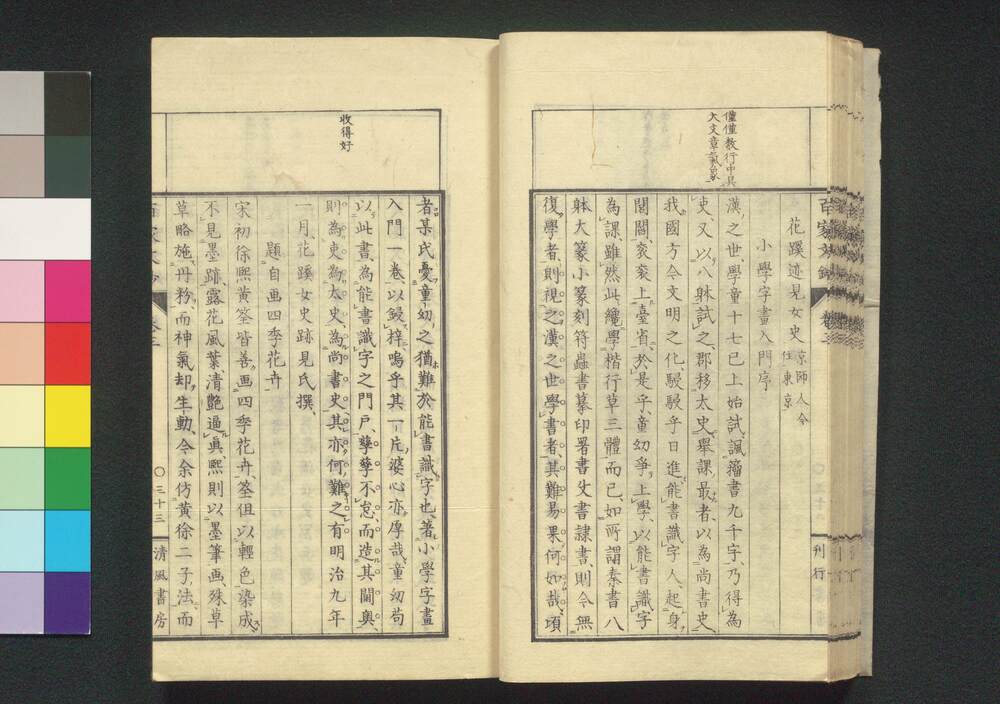 僅僅数行中具
大文章氣象
花蹊迹見女史 京師人今
住東京
小學字畫入門序
漢之世學童十七已上始試諷籀書九千字乃得為
吏又以八躰試之郡移太史舉課最者以為尚書史
我國方今文明之化駸駸乎日進能書識字人起身
閭閻袞袞上臺省於是乎童幼爭上學以能書識字
為課雖然此纔學楷行草三體而已如所謂秦書八
躰大篆小篆刻符蟲書摹印署書殳書隷書則今無
復學者則視之漢之世學書者其難易果何如哉頃
刊行
收得好
者某氏憂童幼之猶難於能書識字也著小學字畫
入門一卷以鋟梓嗚乎其一片婆心亦厚哉童幼苟
以此書為能書識字之門戶孳孳不怠而造其閫奧
則為吏為太史為尚書史其亦何難之有明治九年
一月花蹊女史跡見氏撰
題自画四季花卉
宋初徐熙黄筌皆善画四季花卉筌但以輕色染成
不見墨跡露花風葉清艶逼眞熙則以墨筆画殊草
草略施丹粉而神氣却生動今余仿黄徐二子法而
〇三十三
清風書房